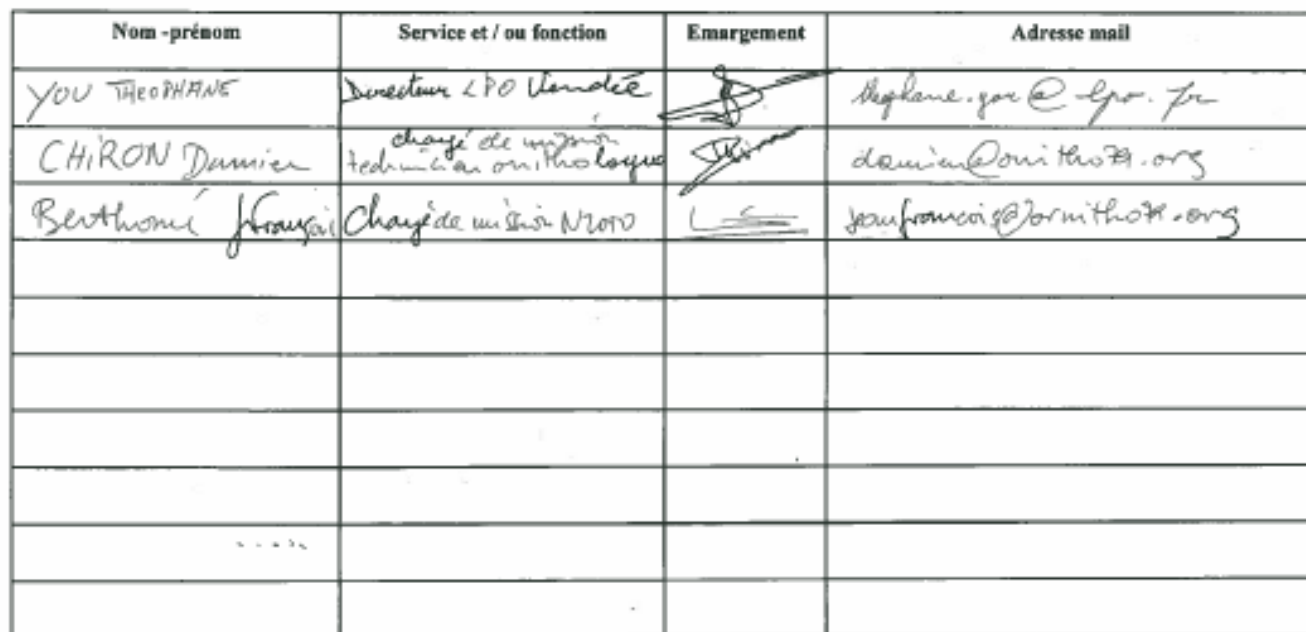 Nom -prénom Service et / ou fonction Emargement Adresse mail
YOU THEOPHANE Directeur LPO Vendée theophane.you@lpo.fr
CHIRON Damien chargé de mission
technicien ornithologue damien@ornitho79.org
Berthomé jfrançois Chargé de mission N2000 jeanfrancois@ornitho79.org